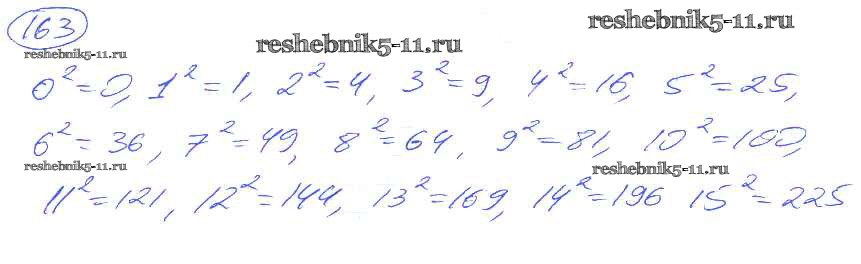 163
reshebnik5-11.ru
reshebnik5-11.ru
reshebnik5-11.ru
0² = 0, 1² = 1, 2² = 4, 3² = 9, 4² = 16, 5² = 25,
6² = 36, 7² = 49, 8² = 64, 9² = 81, 10² = 100,
reshebnik5-11.ru
reshebnik5-11.ru
11² = 121, 12² = 144, 13² = 169, 14² = 196 15² = 225